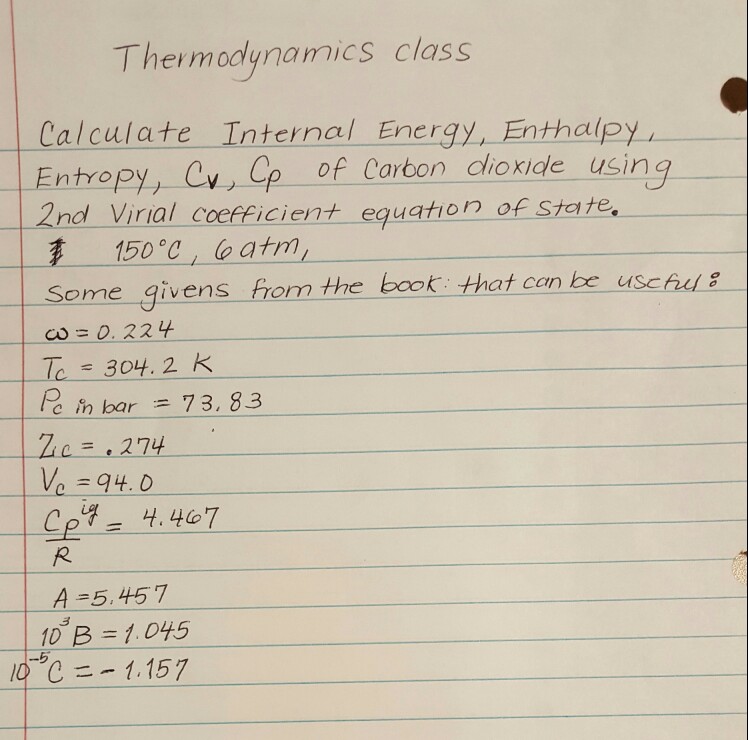 Thermodynamics class
Calculate Internal Energy, Enthalpy,
Entropy, Cv, Cp of Carbon dioxide using
2nd Virial coefficient equation of state.
150°C, 6 atm,
Some givens from the book: that can be useful:
ω = 0.224
Tc = 304.2 K
Pc in bar = 73.83
Zc = .274
Vc = 94.0
Cp^ig/R = 4.467
A = 5.457
10³B = 1.045
10⁻⁵C = -1.157